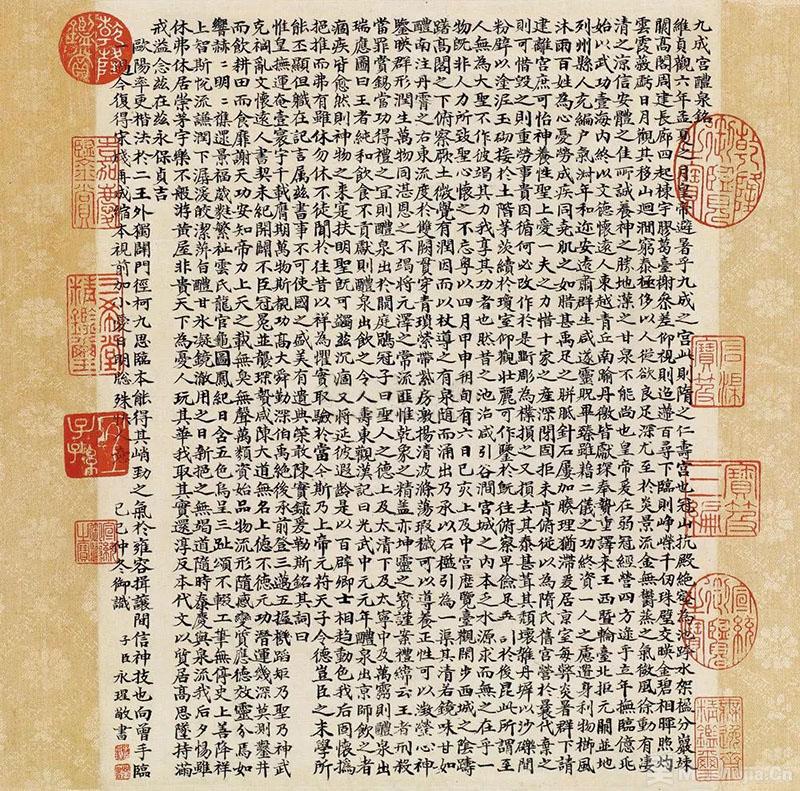 九成宮醴泉銘
維貞觀六年孟夏之月皇帝避暑乎九成之宮此則隋之仁壽宮也冠山抗殿絕壑為池跨水架楹分巖竦
闕高閣周建長廊四起棟宇膠葛臺榭參差仰視則迢遰百尋下臨則崢嶸千仞珠璧交暎金碧相暉照灼
雲霞蔽虧日月觀其移山迴澗窮泰極侈以人從欲良足深尤至於炎景流金無鬱蒸之氣微風徐動有淒
清之涼信安體之佳所誠養神之勝地漢之甘泉不能尚也皇帝爰在弱冠經營四方逮乎立年撫臨億兆
始以武功壹海內終以文德懷遠人東越青丘南踰丹徼皆獻琛奉贄重譯來王西暨輪臺北拒元闕並地
列州縣人充編戶氣淑年和迩安遠肅群生咸遂靈貺畢臻雖藉二儀之功終資一人之慮遺身利物櫛風
沐雨百姓為心憂勞成疾同堯肌之如腊甚禹足之胼胝針石屢加腠理猶滯爰居京室每弊炎暑群下請
建離宮庶可怡神養性聖上愛一夫之力惜十家之產深閉固拒未肯俯從以為隋氏舊宮營於曩代棄之
則可惜毀之則重勞事貴因循何必改作於是斲雕為樸損之又損去其泰甚葺其頹壞雜丹墀以沙礫間
粉壁以塗泥玉砌接於土階茅茨續於瓊室仰觀壯麗可作鑒於既往俯察卑儉足垂訓於後昆此所謂至
人無為大聖不作彼竭其力我享其功者也然昔之池沼咸引谷澗宮城之內本乏水源求而無之在乎一
物既非人力所致聖心懷之不忘粵以四月甲申朔旬有六日己亥上及中宮歷覽臺觀閑步西城之陰躊
躇高閣之下俯察厥土微覺有潤因而以杖導之有泉隨而涌出乃承以石檻引為一渠其清若鏡味甘如
醴南注丹霄之右東流度於雙闕貫穿青瑣縈帶紫房激揚清波滌蕩瑕穢可以導養正性可以澂瑩心神
鑒暎群形潤生萬物同湛恩之不竭將元澤之常流匪惟乾象之精蓋亦坤靈之寶謹案禮緯云王者刑殺
當罪賞錫當功得禮之宜則醴泉出於闕庭鶡冠子曰聖人之德上及太清下及太寧中及萬靈則醴泉出
瑞應圖曰王者純和飲食不貢獻則醴泉出飲之令人壽東觀漢記曰光武中元元年醴泉出京師飲之者
痼疾皆愈然則神物之來寔扶明聖既可蠲茲沉痼又將延彼遐齡是以百辟卿士相趨動色我后固懷撝
挹推而弗有雖休勿休不徒聞於往昔以祥為懼實取驗於當今斯乃上帝元符天子令德豈臣之末學所
能丕顯但職在記言屬茲書事不可使國之盛美有遺典策敢陳實錄爰勒斯銘其詞曰
惟皇撫運奄壹寰宇千載膺期萬物斯覩功高大舜勤深伯禹絕後承前登三邁五握機蹈矩乃聖乃神武
克禍亂文懷遠人書契未紀開闢不臣冠冕並襲琛贄咸陳大道無名上德不德元功潛運幾深莫測鑿井
而飲耕田而食靡謝天功安知帝力上天之載無臭無聲萬類資始品物流形隨感變質應德效靈介焉如
響赫赫明明雜遝景福葳蕤繁祉雲氏龍官龜圖鳳紀日含五色烏呈三趾頌不輟工筆無停史上善降祥
上智斯悅流謙潤下潺湲皎潔蓱旨醴甘冰凝鏡澈用之日新挹之無竭道隨時泰慶與泉流我后夕惕雖
休弗休居崇茅宇樂不般遊黃屋非貴天下為憂人玩其華我取其實還淳反本代文以質居高思墜持滿
戒溢念茲在茲永保貞吉
歐陽率更楷法於二王外獨闢門徑柯九思臨本能得其峭勁之氣於雍容揖讓間信神技也向曾手臨
一過今復得宋棧再成縮本視前加小
己巳仲冬御識
子臣永瑆敬書
乾隆御覽之寶
石渠寶笈
寶笈三編
宣統御覽之寶
無逸齋精鑑璽
乾隆鑑賞
嘉慶鑑賞
三希堂精鑑璽
宜子孫